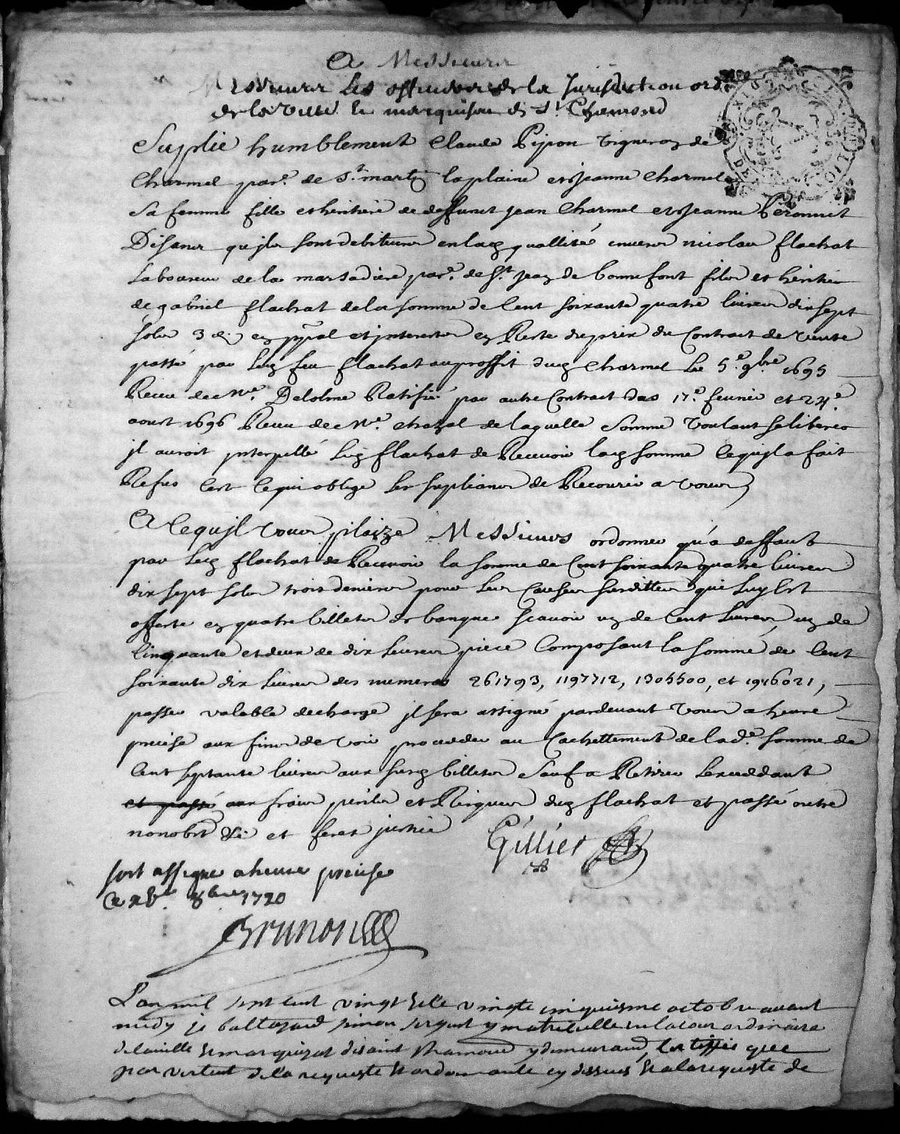 A Messieurs
Messieurs les officiers de la Jurisdiction ord
de la ville et marquisat de St Chamond
Suplie humblement Claude Pipon Vigneron de
Charmel parse de St martin la plaine et Jeanne Charmel
Sa femme fille et heritiere de deffunct Jean Charmel et Jeanne Peronnet
Disants qu'jls sont debiteurs en lad quallité envers nicolas flachat
Laboureur de la marsadiere parse de St Jean de bonnefont fils et heritier
de gabriel flachat de la somme de Cent soixante quatre livres dix sept
sols 3 d en ppal et jnterests en Reste du prix du Contract de vente
passé par led feu flachat au proffit dud Charmel Le 5e 9bre 1695
Receu de me Delolme Ratiffié par autre Contract des 17e feuvrier et 24e
aoust 1696 Receu de me chazal de laquelle Somme Voulant se liberer
jl auroit jnterpellé Led flachat de Recevoir lad somme ce qu'jl a fait
Refus C'est ce qui oblige Les suplians de Recourir a vous
A ce qu'jl vous plaize Messieurs ordonner qu'a deffaut
par Led flachat de Recevoir la somme de Cent soixante quatre livres
dix sept sols trois deniers pour les Causes susdittes qui luy Est
offerte en quatre billets de banque scavoir un de Cent Livres, un de
Cinquante et deux de dix Livres piece Composant la somme de Cent
soixante dix Livres des numeros 261793, 1197712, 1305500, et 1916021,
passer valable decharge jl sera assigné pardevant Vous a heure
precise aux fins de voir proceder au Cachettement de lade somme de
Cent septante livres aux susd billets Sauf a Retirer L'exceddant
et passé aux frais perils et Risques dud flachat et passé outre
nonobst &c et feres justice
Gillier
soit assigné a heure precise
Ce xxve 8bre 1720
Brunon
L'an mil sept cent vingt et le vingt cinquisme octobre avant
midy je baltazard simon sergent jmatriculle en la cour ordinaire
de la ville et marquizat de saint chamond y demeurand certiffie que
par vertu de la requeste et ordonnance cy dessus et a la requeste de